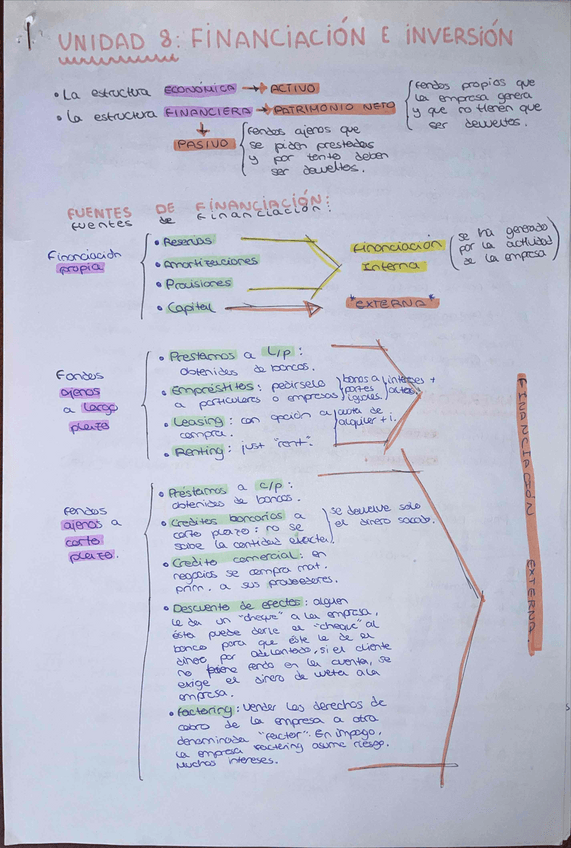 UNIDAD 8: FINANCIACIÓN E INVERSIÓN
• La estructura ECONÓMICA → ACTIVO
• La estructura FINANCIERA → PATRIMONIO NETO
fondos propios que
la empresa genera
y que no tienen que
ser devueltos.
PASIVO
fondos ajenos que
se piden prestados
y por tanto deben
ser devueltos.
FUENTES DE FINANCIACIÓN:
Financiación
propia
• Reservas
• Amortizaciones
• Provisiones
• Capital
Financiación
Interna
"EXTERNA"
se ha generado
por la actividad
de la empresa
Fondos
ajenos
a largo
plazo
• Préstamos a L/p:
obtenidos de bancos.
• Empréstitos: pedírselo
a particulares o empresas
bonos a
partes
iguales.
intereses +
altos.
• Leasing: con opción a
compra.
cuota de
alquiler + i.
• Renting: just "rent".
Fondos
ajenos a
corto
plazo.
• Préstamos a c/p:
obtenidos de bancos.
• Créditos bancarios a
corto plazo: no se
sabe la cantidad exacta.
se devuelve solo
el dinero sacado.
• Crédito comercial: en
negocios se compra mat.
prim. a sus proveedores.
• Descuento de efectos: alguien
le da un "cheque" a la empresa,
ésta puede darle el "cheque" al
banco para que éste le de el
dinero por adelantado, si el cliente
no tiene fondo en la cuenta, se
exige el dinero de vuelta a la
empresa.
• Factoring: vender los derechos de
cobro de la empresa a otra
denominada "factor". En impago,
la empresa factoring asume riesgo.
Muchos intereses.
FINANCIACIÓN EXTERNA